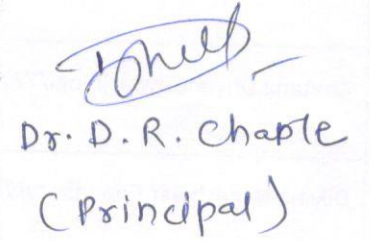 Dr. D. R. Chaple
(Principal)